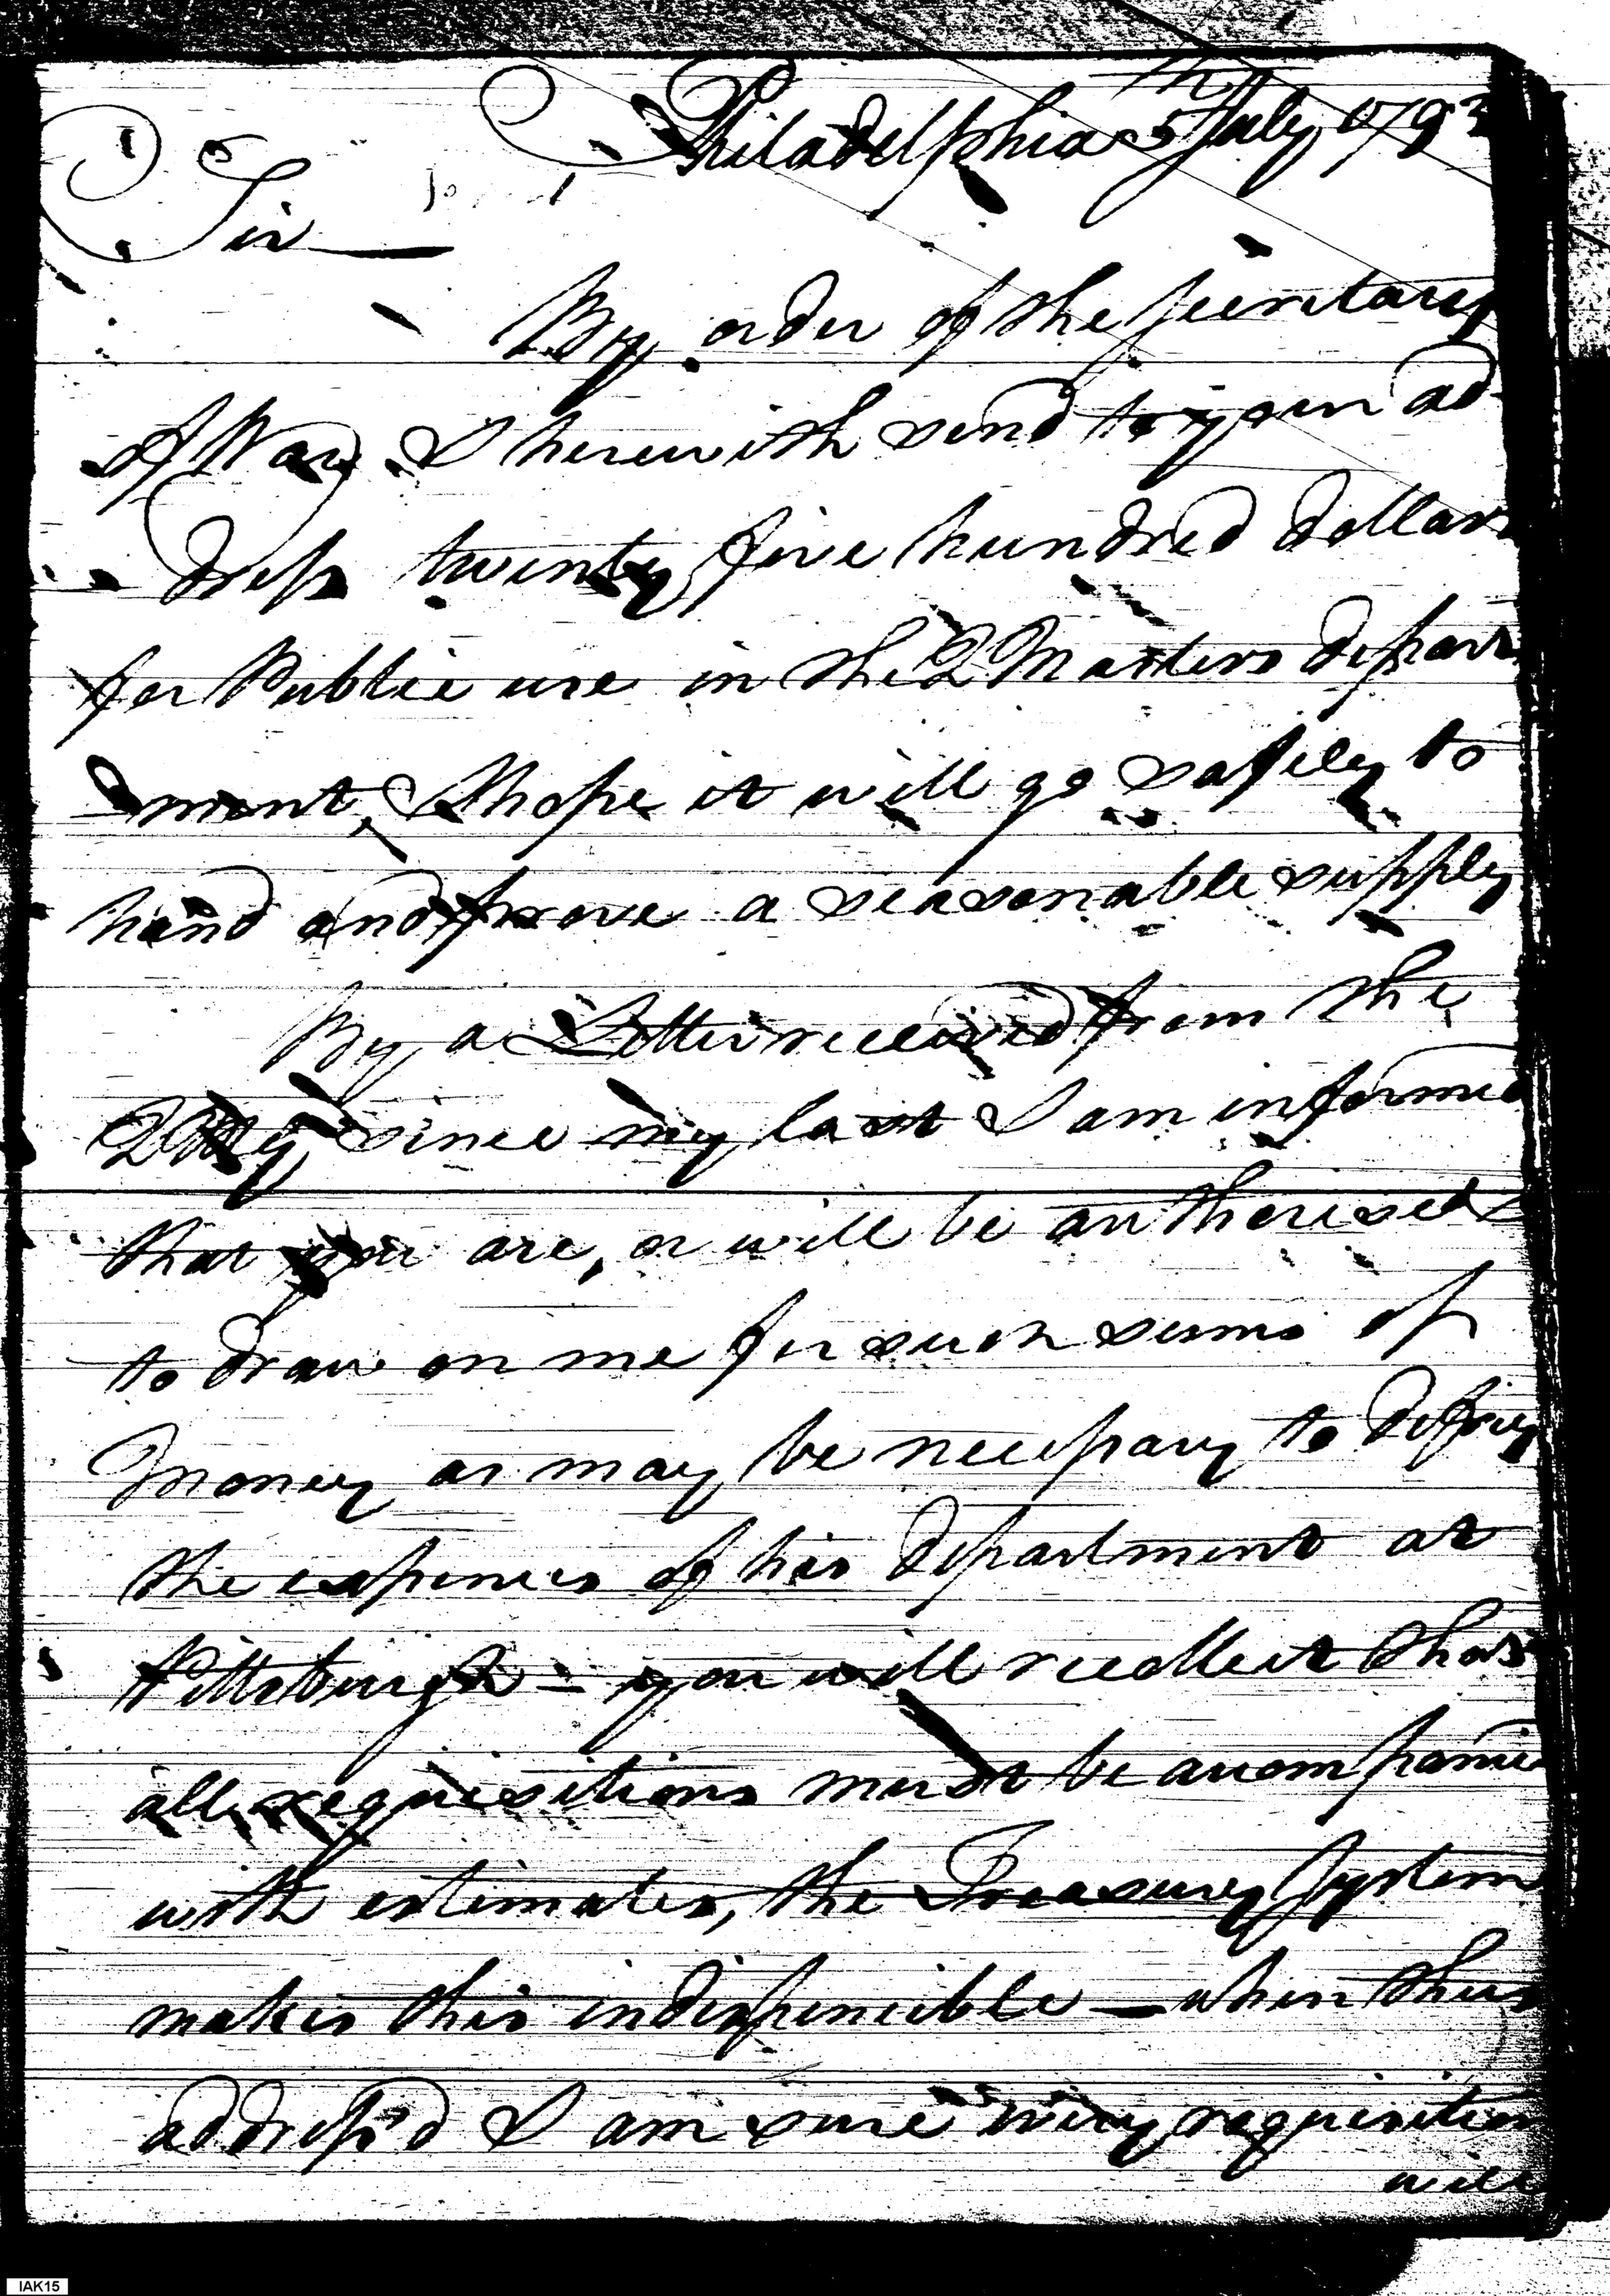 Philadelphia 5th July 1792
Sir
By order of the Secretary
of War I herewith send to your ad
dress twenty five hundred dollars
for Public use in the Q Masters depart
ment, I hope it will go safely to
hand and prove a seasonable supply
By a Letter received from the
QMG since my last I am informed
that you are, or will be authorised
to draw on me for such sums of
Money as may be necessary to defray
the expences of his department at
Pittsburgh - you will recollect that
all requisitions must be accompanied
with estimates, the Treasury System
makes this indispencible - when thus
address'd I am sure every requisition
will
IAK15